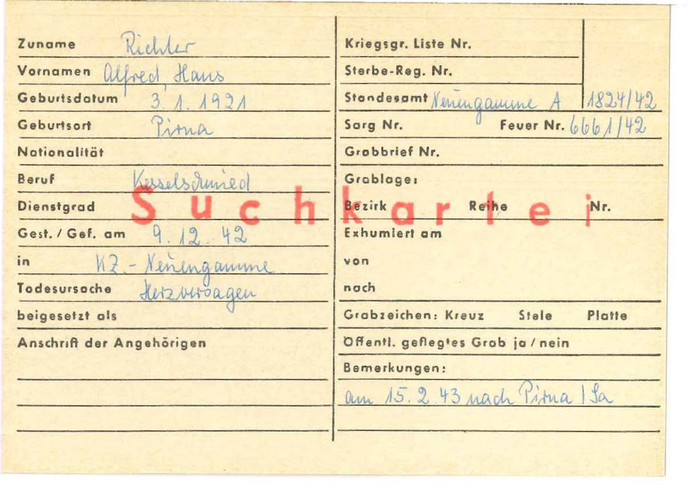 Zuname Richter
Vornamen Alfred, Hans
Geburtsdatum 3. 1. 1921
Geburtsort Pirna
Nationalität
Beruf Kesselschmied
Dienstgrad
Gest. / Gef. am 9. 12. 42
in KZ.- Neuengamme
Todesursache Herzversagen
beigesetzt als
Anschrift der Angehörigen
Suchkartei
Kriegsgr. Liste Nr.
Sterbe-Reg. Nr.
Standesamt Neuengamme A 1824/42
Sarg Nr. Feuer Nr. 6661/42
Grabbrief Nr.
Grablage:
Bezirk Reihe Nr.
Exhumiert am
von
nach
Grabzeichen: Kreuz Stele Platte
Öffentl. gepflegtes Grab ja / nein
Bemerkungen:
am 15. 2. 43 nach Pirna / Sa